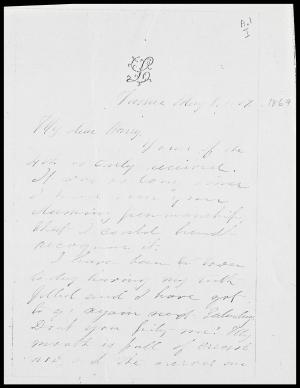 A.1
I
1869
My dear Harry,
Yours of the
4th is duly received.
It was so long since
I had seen your
charming penmanship,
that I could hardly
recognize it.
I have been to town
today having my teeth
filled and I have got
to go again next Saturday.
Don't you pity me? My
mouth is full of creosote
and the nerves are